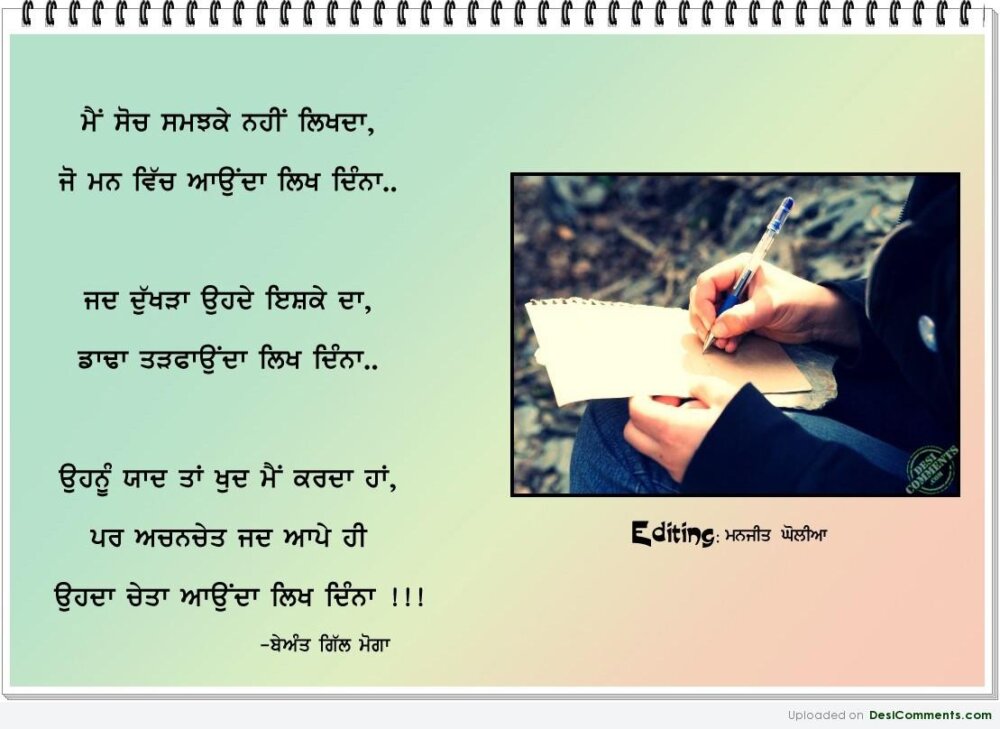 ਮੈਂ ਸੋਚ ਸਮਝਕੇ ਨਹੀਂ ਲਿਖਦਾ,
ਜੋ ਮਨ ਵਿੱਚ ਆਉਂਦਾ ਲਿਖ ਦਿੰਨਾ..
ਜਦ ਦੁੱਖੜਾ ਉਹਦੇ ਇਸ਼ਕੇ ਦਾ,
ਡਾਢਾ ਤੜਫਾਉਂਦਾ ਲਿਖ ਦਿੰਨਾ..
ਉਹਨੂੰ ਯਾਦ ਤਾਂ ਖੁਦ ਮੈਂ ਕਰਦਾ ਹਾਂ,
ਪਰ ਅਚਨਚੇਤ ਜਦ ਆਪੇ ਹੀ
ਉਹਦਾ ਚੇਤਾ ਆਉਂਦਾ ਲਿਖ ਦਿੰਨਾ !!!
-ਬੇਅੰਤ ਗਿੱਲ ਮੋਗਾ
DESI COMMENTS .com
Editing: ਮਨਜੀਤ ਘੋਲੀਆ
Uploaded on DesiComments.com